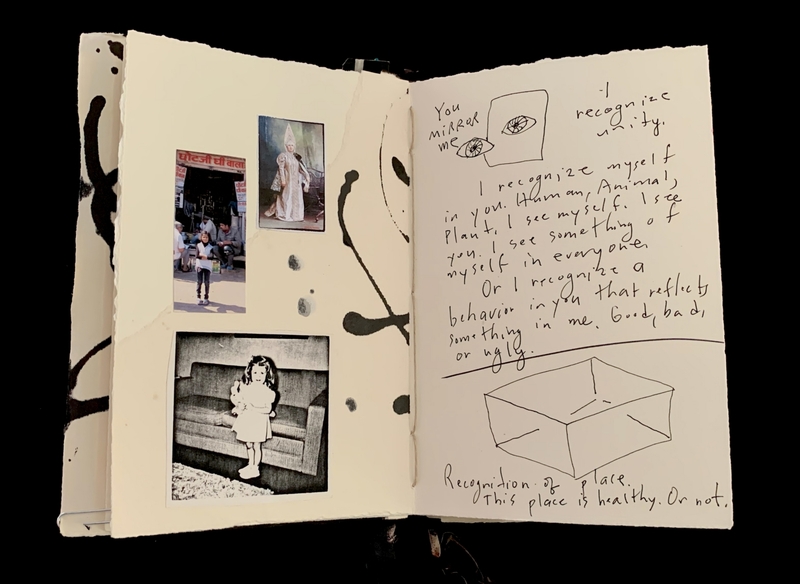 चोटजी घी वाला
You
mirror
me
I
recognize
unity.
I recognize myself
in you. Human, Animal,
Plant, I see myself. I see
you. I see something of
myself in everyone
Or I recognize a
behavior in you that reflects
something in me. Good, bad,
or ugly.
Recognition of place.
This place is healthy. Or not.